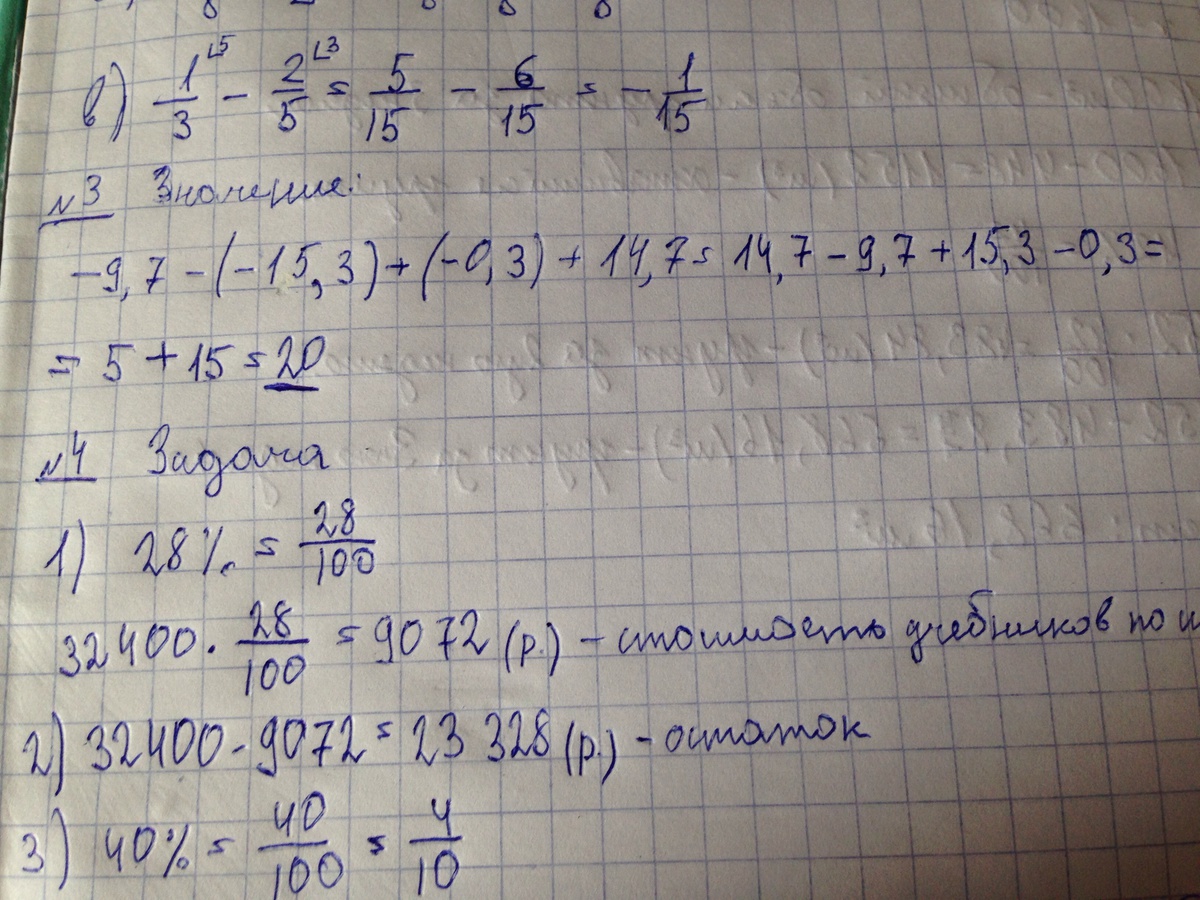 в) 1/3 ⌊5 - 2/5 ⌊3 = 5/15 - 6/15 = - 1/15
№3 Значение:
-9,7 - (-15,3) + (-0,3) + 14,7 = 14,7 - 9,7 + 15,3 - 0,3 =
= 5 + 15 = 20
№4 Задача
1) 28% = 28/100
32400 · 28/100 = 9072 (р.) - стоимость учебников по
2) 32400 - 9072 = 23 328 (р.) - остаток
3) 40% = 40/100 = 4/10